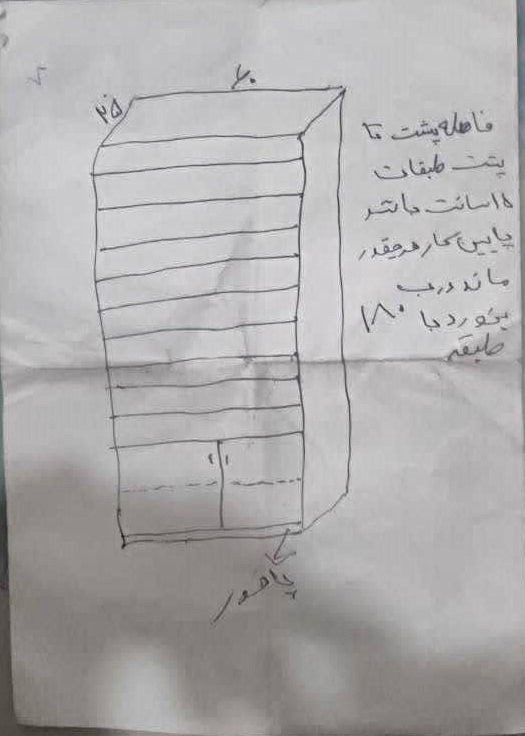 ۶۰
۲۵
فاصله پشت تا
پشت طبقات
۱۵ سانت باشد
پایین کار هرچقدر
ماند درب
بخورد با
۱۸۰
طبقه
پاخور